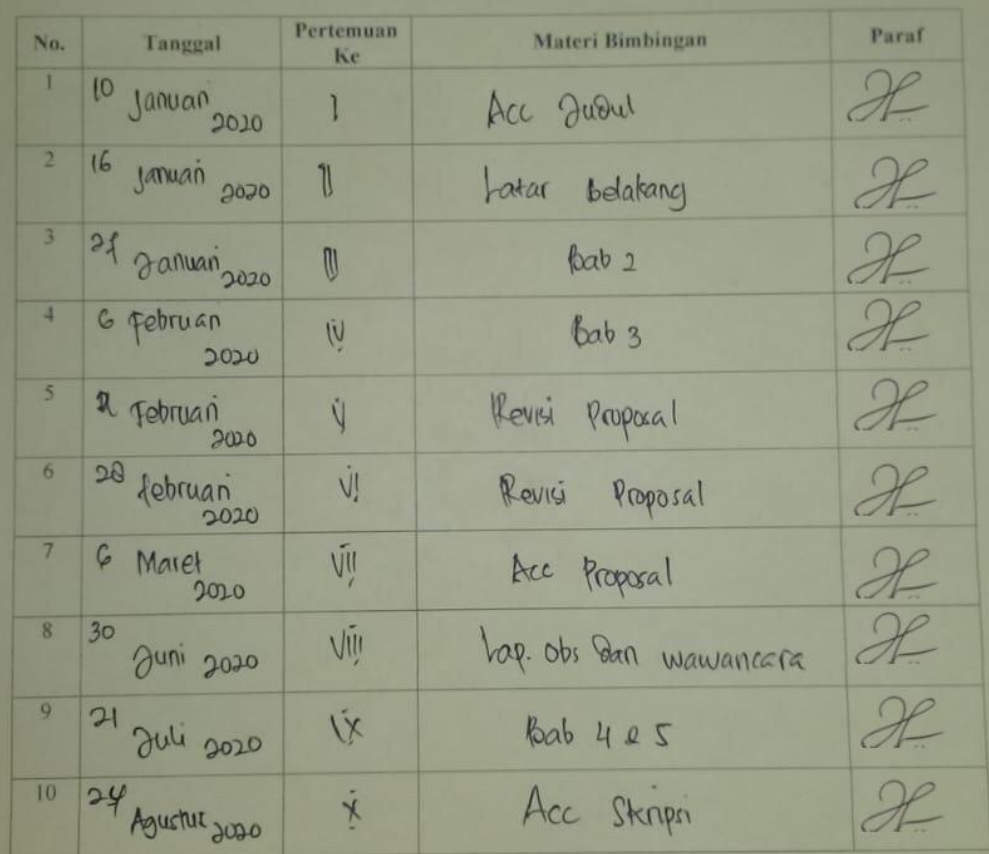 No. Tanggal Pertemuan Ke Materi Bimbingan Paraf
1 10 Januari 2020 I Acc Judul
2 16 Januari 2020 II Latar belakang
3 Januari 2020 III Bab 2
4 6 Februari 2020 IV Bab 3
5 Februari 2020 V Revisi Proposal
6 28 februari 2020 VI Revisi Proposal
7 6 Maret 2020 VII Acc Proposal
8 30 Juni 2020 VIII Lap. obs dan wawancara
9 21 Juli 2020 IX Bab 4 & 5
10 24 Agustus 2020 X Acc Skripsi